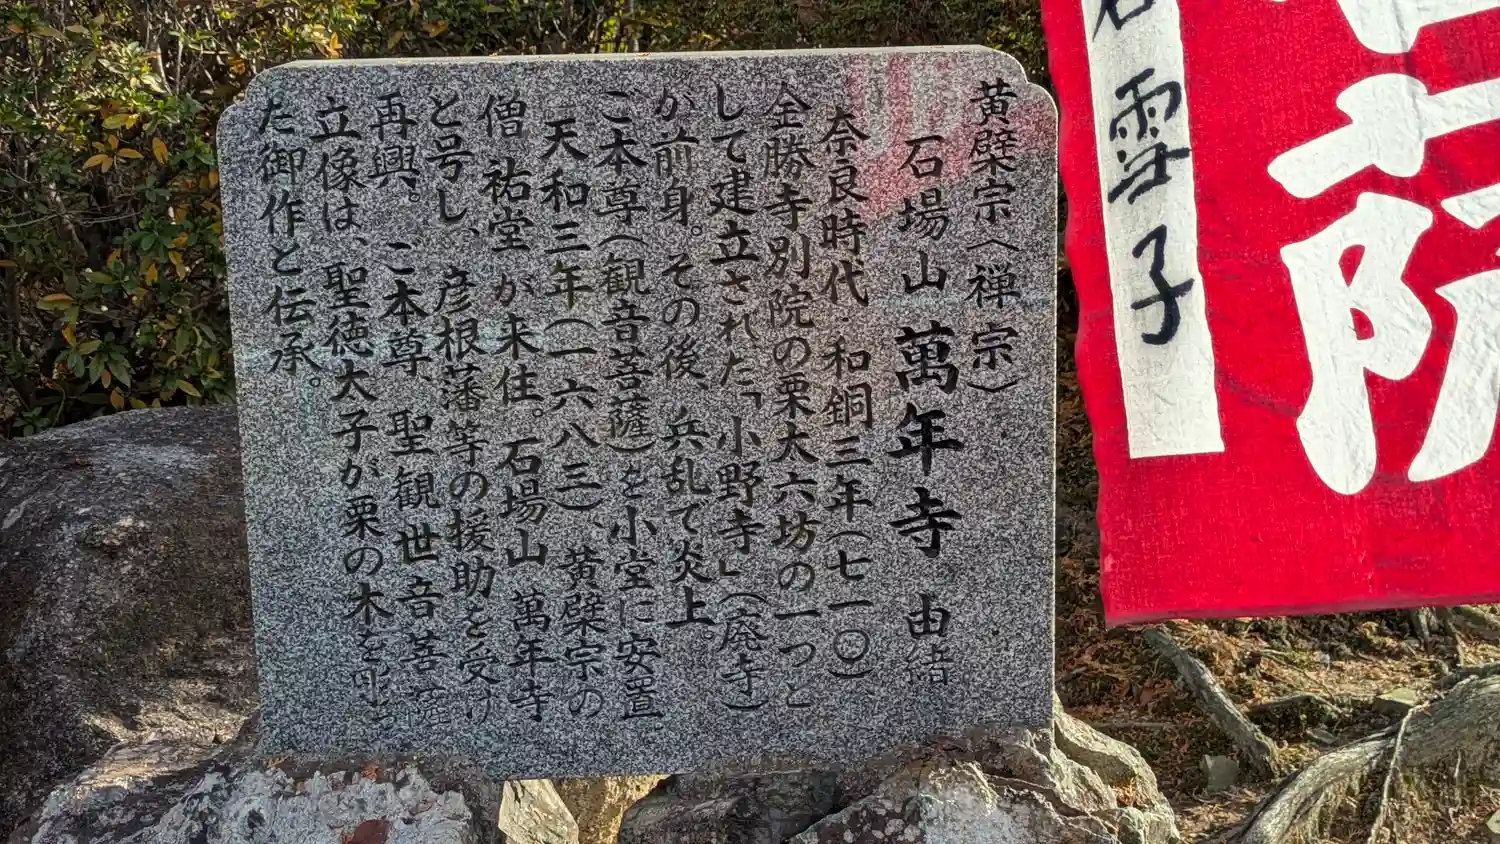 黄檗宗(禅宗)
石場山 萬年寺 由緒
奈良時代 和銅三年(七一〇)
全勝寺別院の栗太六坊の一つと
して建立された「小野寺」(廃寺)
が前身。その後、兵乱て炎上。
ご本尊(観音菩薩)を小堂に安置
天和三年(一六八三)、黄檗宗の
僧 祐堂 が来住。石場山 萬年寺
と号し、彦根藩等の援助を受け
再興。ご本尊、聖観世音菩薩
立像は、聖徳太子が栗の木を彫っ
た御作と伝承。
雲子
院